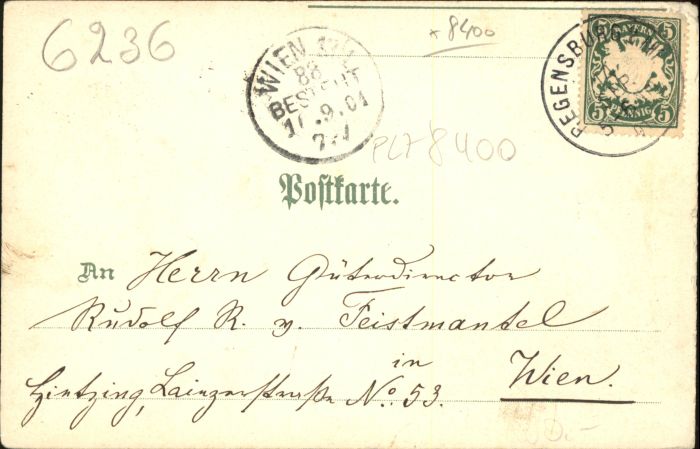 6236
* 8400
WIEN
88
BESTELLT
9.01
REGENSBURG
5 5
5 PFENNIG 5
PLZ 8400
Postkarte.
An Herrn Güterdirector
Rudolf R. v. Feistmantel
in Wien.
Hietzing, Lainzerstraße No. 53.